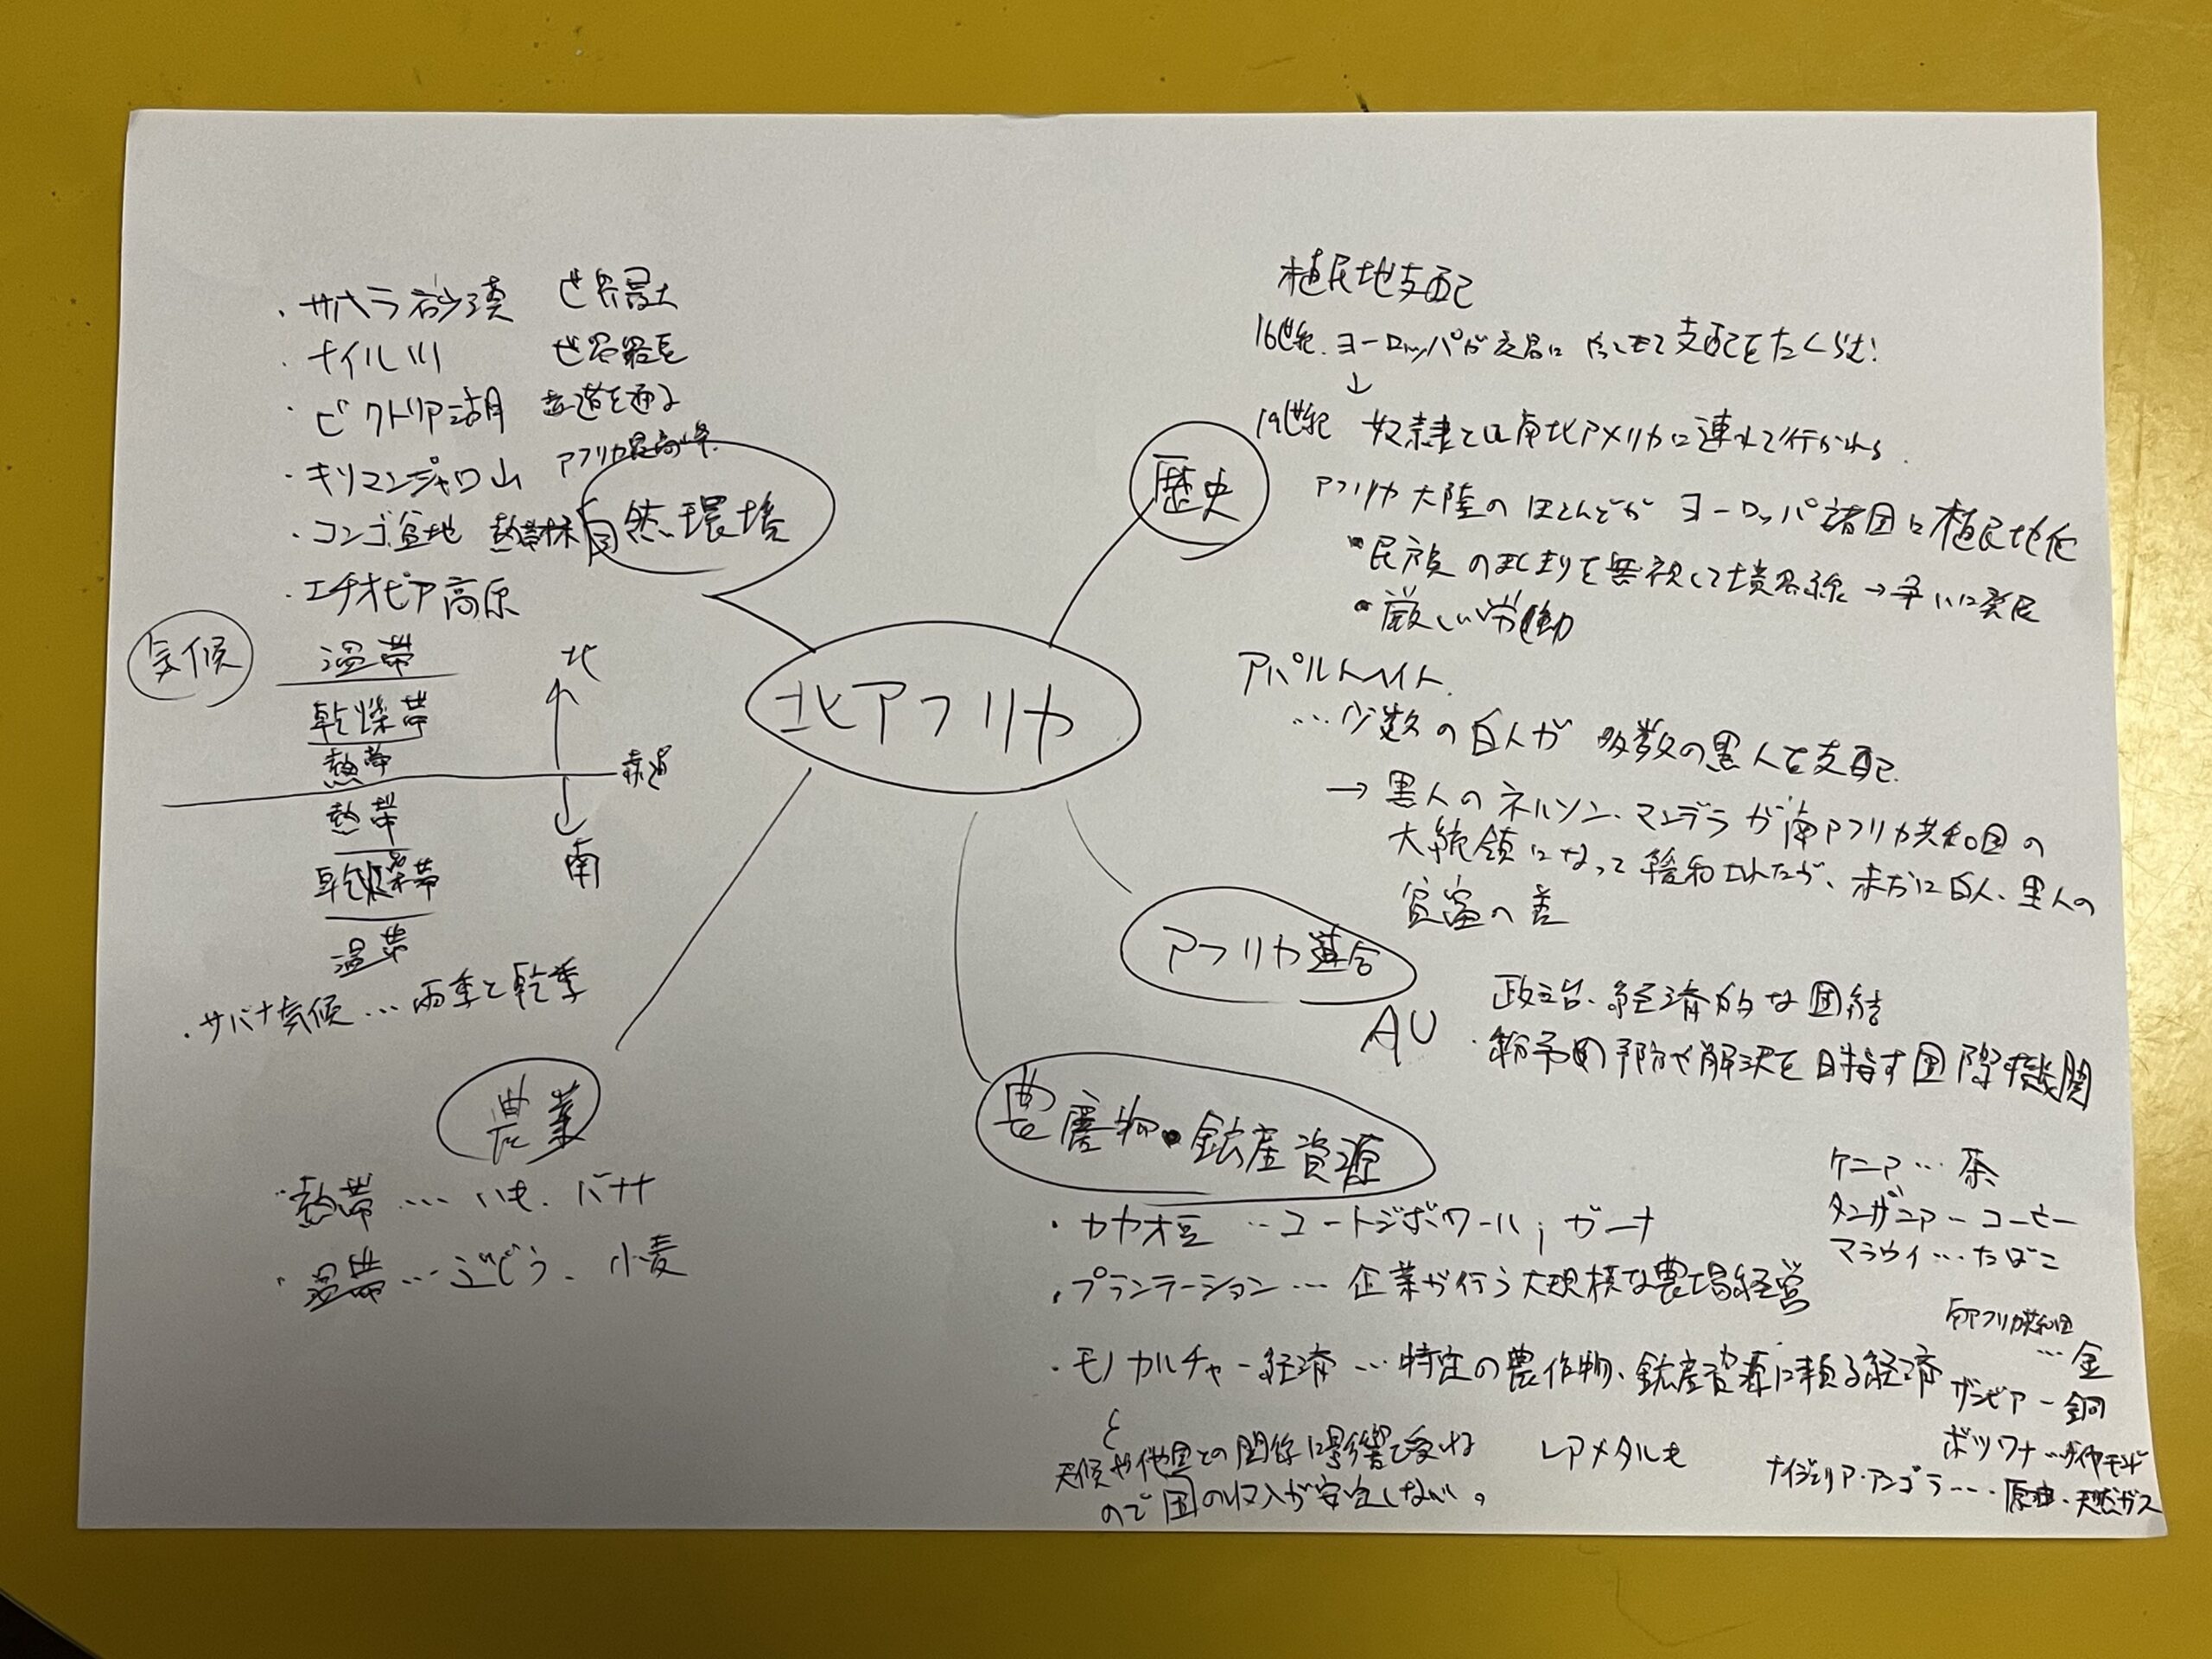 北アフリカ
自然環境
・サハラ砂漠 世界最大
・ナイル川 世界最長
・ビクトリア湖 赤道を通る
・キリマンジャロ山 アフリカ最高峰
・コンゴ盆地 熱帯林
・エチオピア高原
気候
温帯
乾燥帯
熱帯
赤道
熱帯
乾燥帯
温帯
北
南
・サバナ気候…雨季と乾季
農業
・熱帯…いも、バナナ
・温帯…ぶどう、小麦
歴史
植民地支配
16世紀 ヨーロッパが 支配をたくらむ!
↓
19世紀 奴隷として南北アメリカに連れて行かれる
アフリカ大陸のほとんどがヨーロッパ諸国に植民地化
・民族のまとまりを無視して境界線→争いに発展
・厳しい労働
アパルトヘイト
…少数の白人が多数の黒人を支配
→黒人のネルソン・マンデラが南アフリカ共和国の
大統領になって緩和されたが、未だに白人、黒人の
貧富の差
アフリカ連合
AU
政治、経済的な団結
・紛争の予防や解決を目指す国際機関
農産物・鉱産資源
・カカオ豆…コートジボワール、ガーナ
・プランテーション…企業が行う大規模な農場経営
・モノカルチャー経済…特定の農作物、鉱産資源に頼る経済
天候や他国との関係に影響で受ける
ので国の収入が安定しない。
レアメタルも
ケニア…茶
タンザニア－コーヒー
マラウイ…たばこ
南アフリカ共和国
…金
ザンビア－銅
ボツワナ…ダイヤモンド
ナイジェリア・アンゴラ…原油・天然ガス